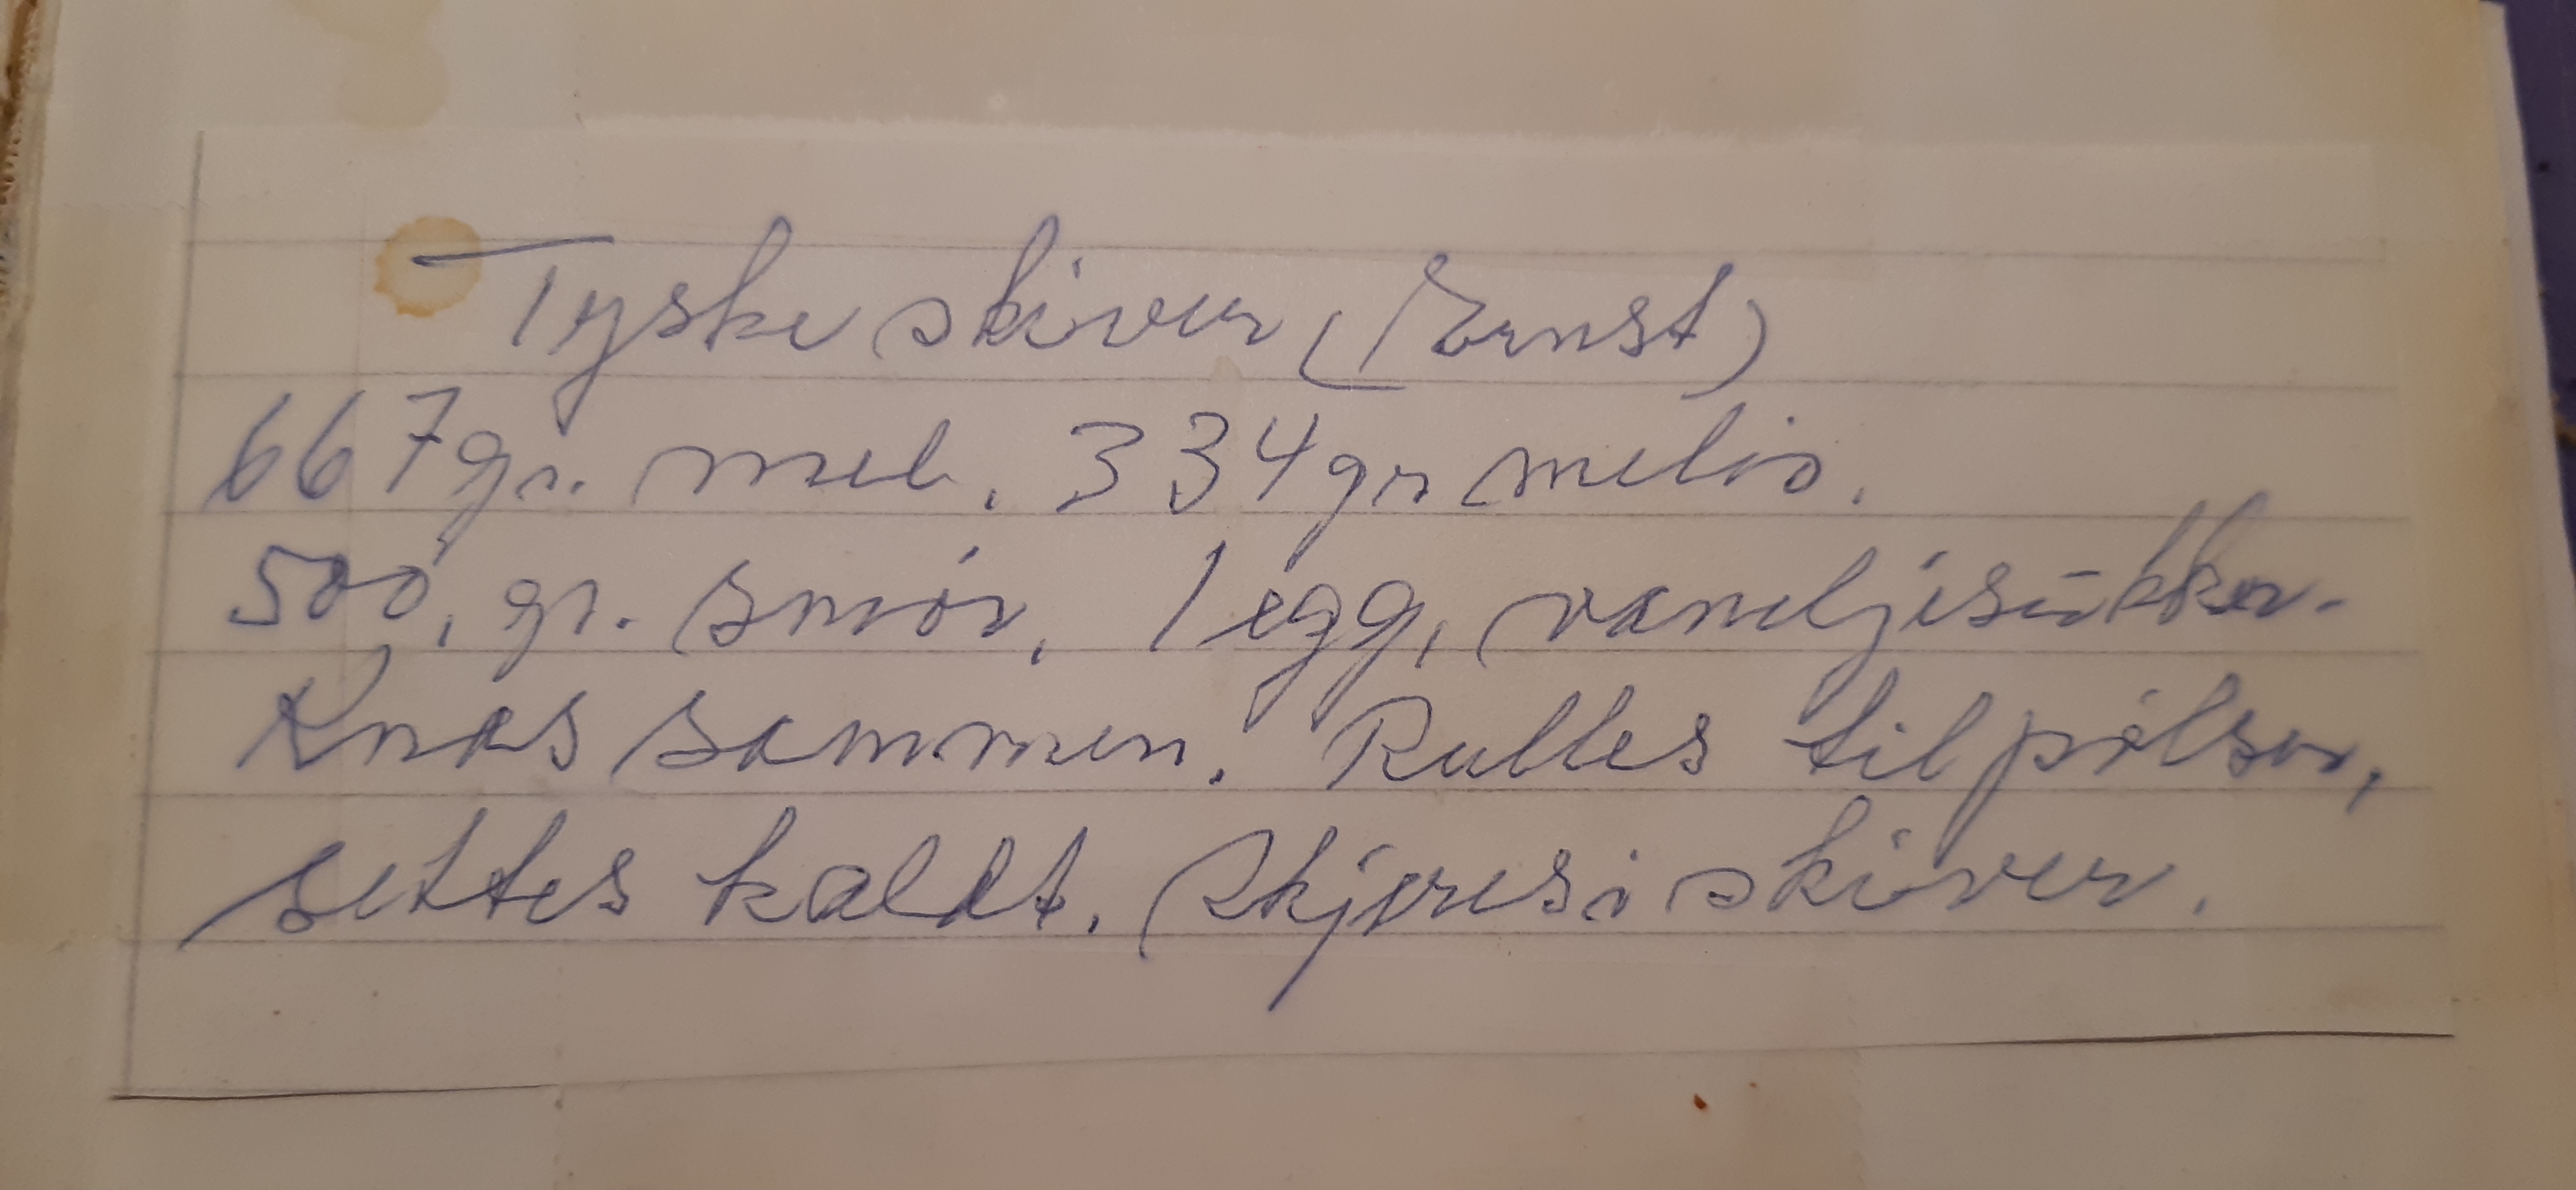 Tyske skiver (Ernst)
667gr. mel. 334gr melis.
500, gr. smør, 1 egg, vaneljesukker.
Knas sammen. Rulles til pølser,
settes kaldt. Skjæres i skiver.